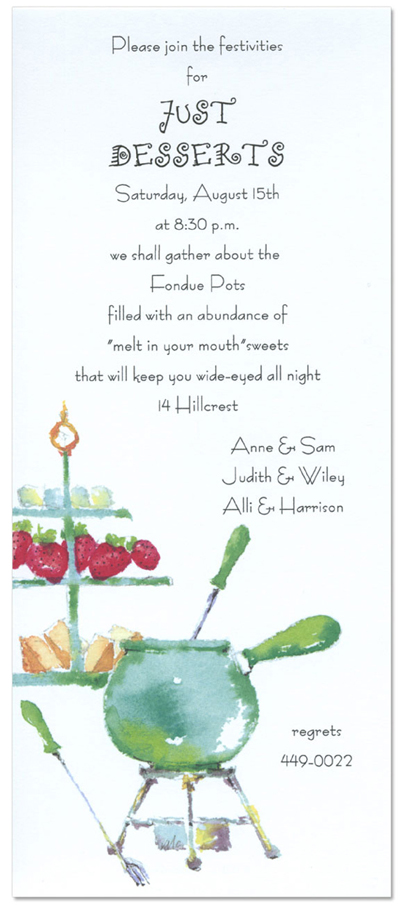 Please join the festivities
for
JUST
DESSERTS
Saturday, August 15th
at 8:30 p.m.
we shall gather about the
Fondue Pots
filled with an abundance of
"melt in your mouth"sweets
that will keep you wide-eyed all night
14 Hillcrest
Anne & Sam
Judith & Wiley
Alli & Harrison
regrets
449-0022